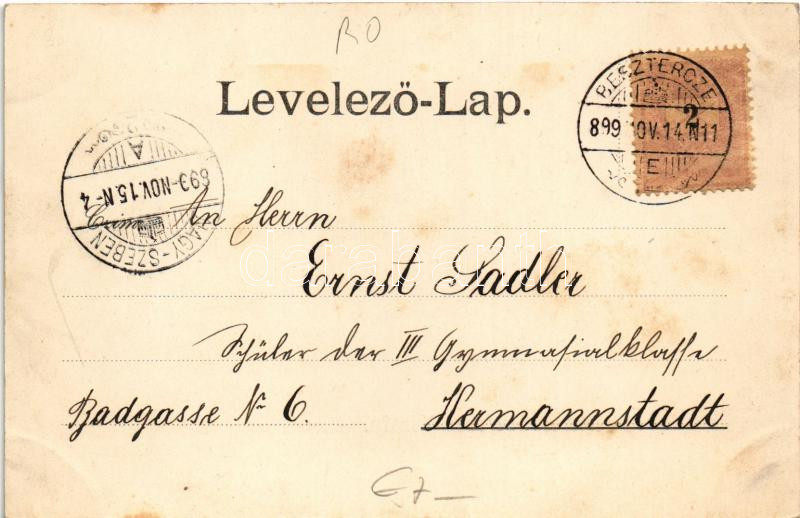 RO
Levelező-Lap.
BESZTERCZE
2
899 NOV. 14. N11
E
A
893-NOV.15.N-4
NAGY-SZEBEN
An Herrn
Ernst Sadler
Schüler der III Gymnasialklasse
Badgasse № 6.
Hermannstadt
darabanth